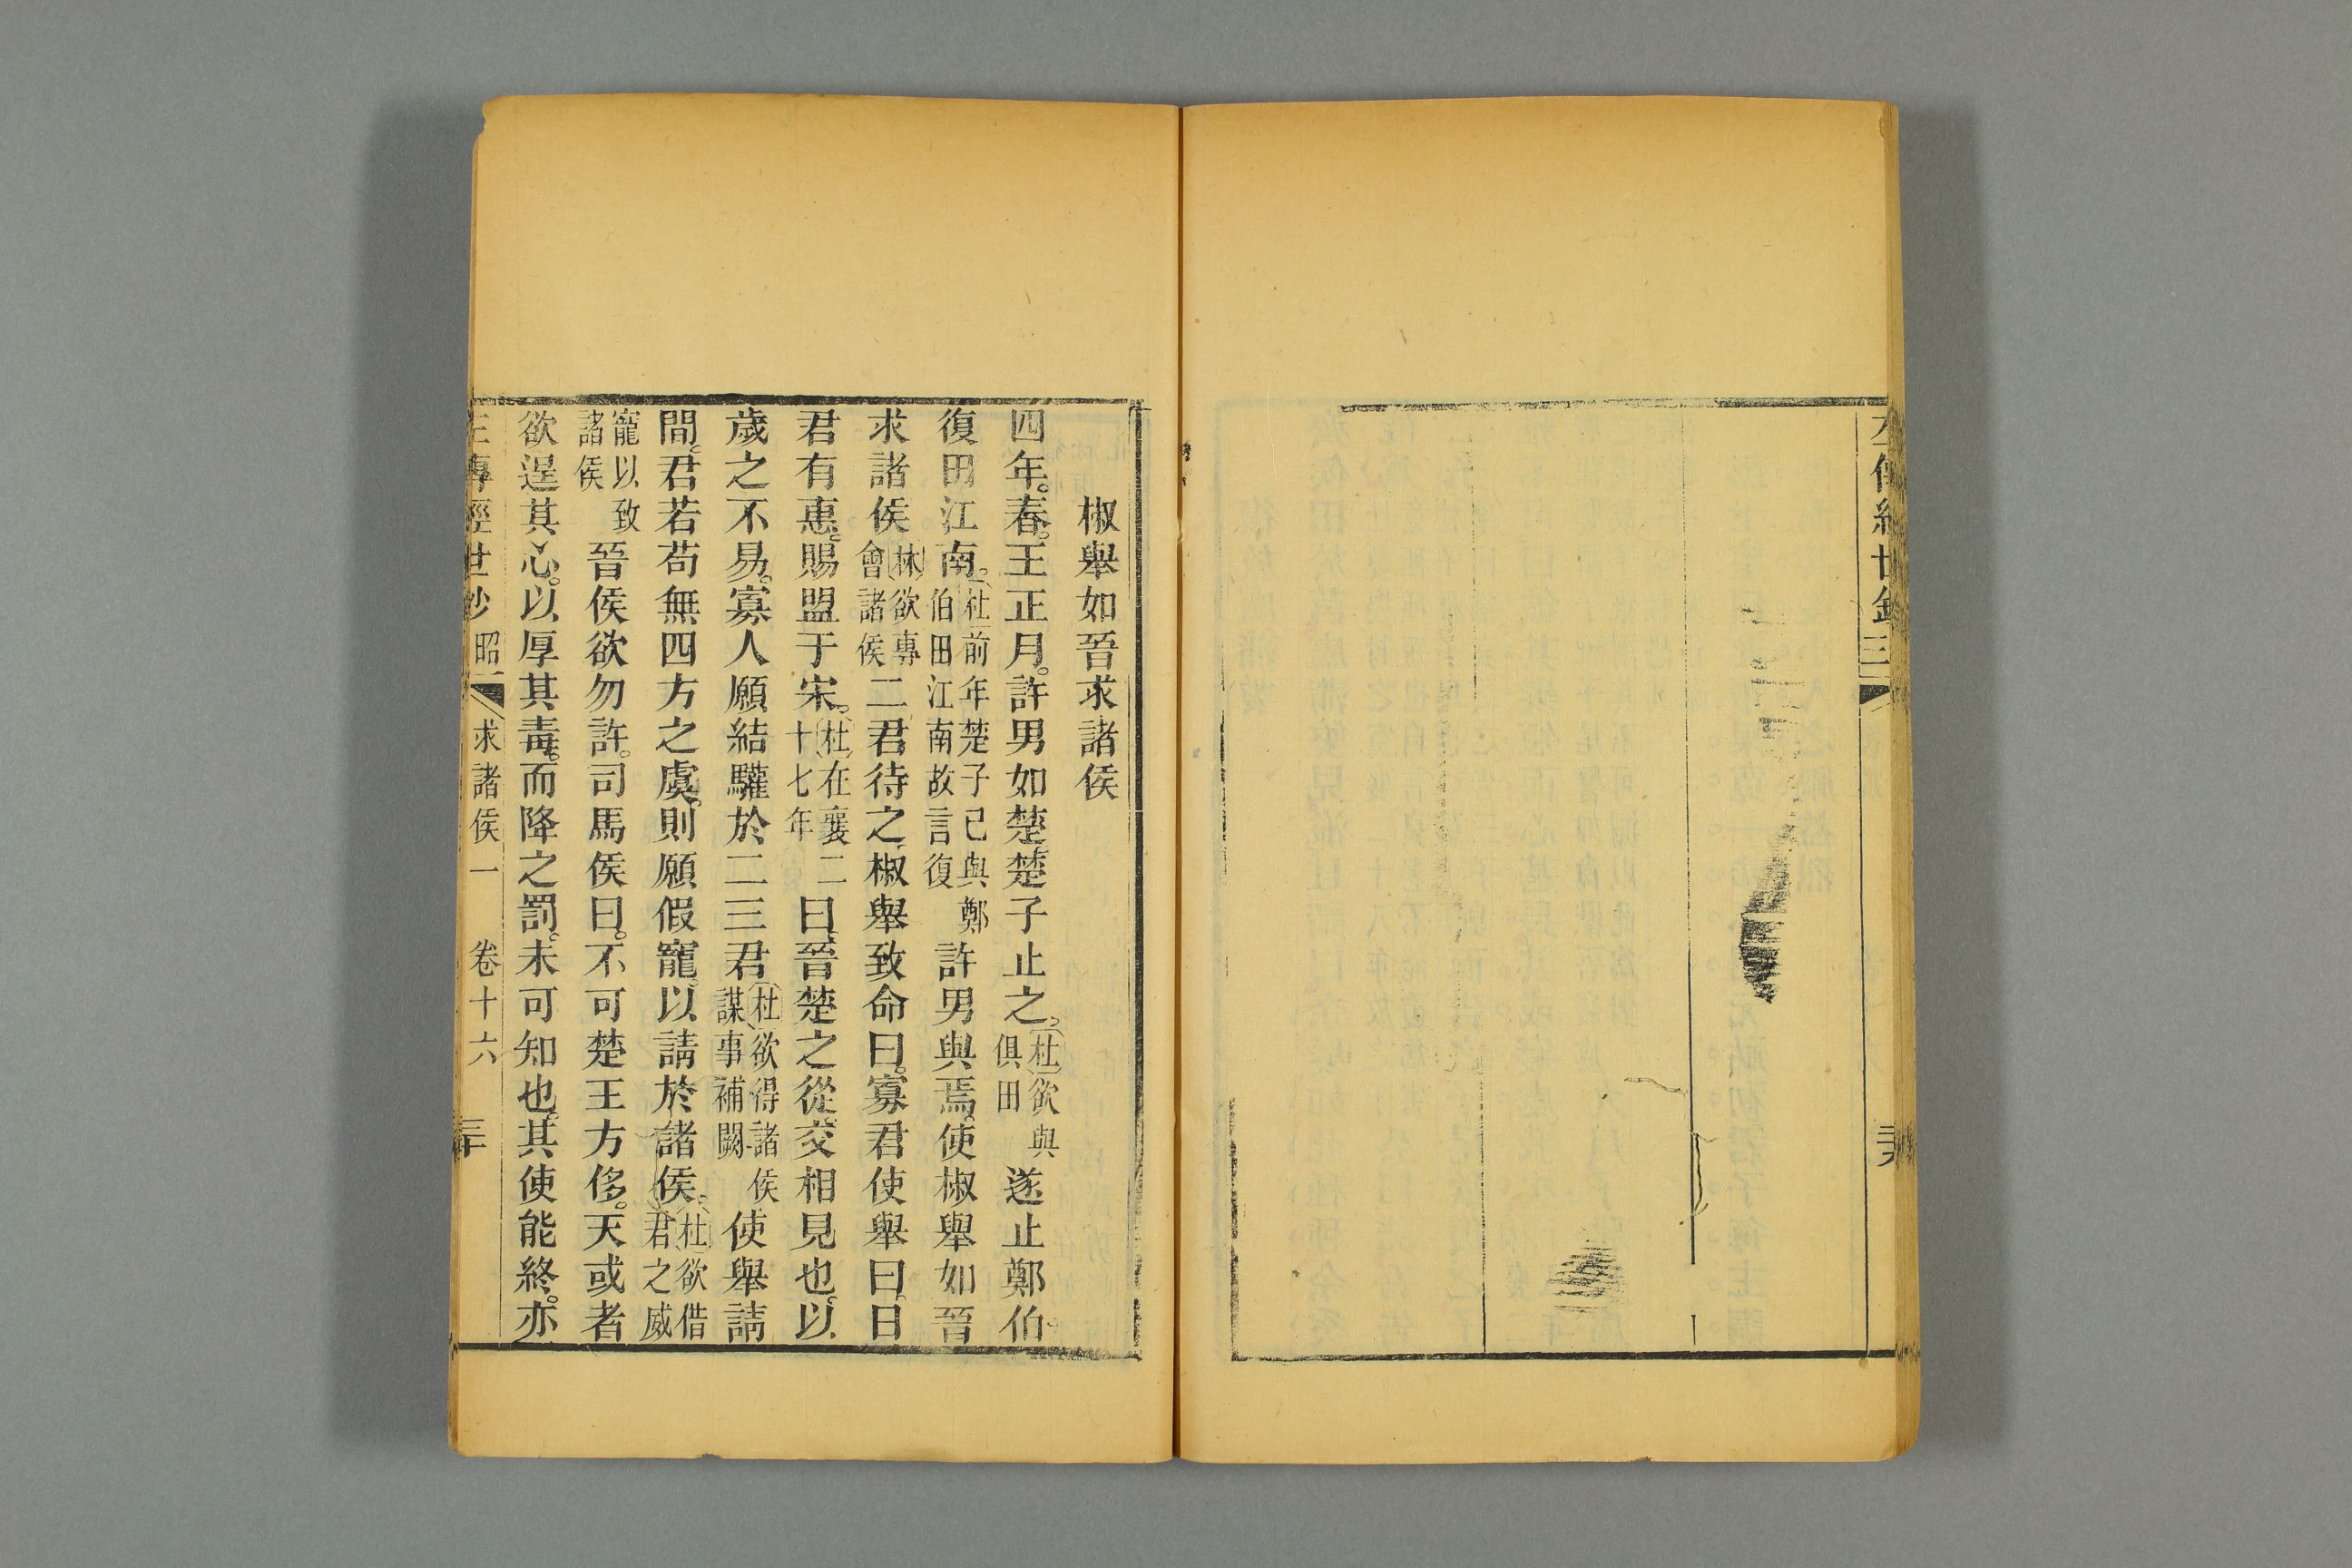 椒舉如晉求諸侯
四年。春。王正月。許男如楚。楚子止之。杜欲與俱田遂止鄭伯
復田江南。杜前年楚子已與鄭伯田江南故言復許男與焉。使椒舉如晉
求諸侯林欲專會諸侯二君待之。椒舉致命曰。寡君使舉曰。日
君有惠。賜盟于宋。杜在襄二十七年曰。晉楚之從。交相見也。以
歲之不易。寡人願結驩於二三君杜欲得諸侯謀事補闕使舉請
間。君若苟無四方之虞。則願假寵。以請於諸侯。杜欲借君之威
寵以致諸侯晉侯欲勿許。司馬侯曰。不可楚王方侈。天或者
欲逞其心。以厚其毒。而降之罰。未可知也。其使能終。亦
左傳經世鈔 昭 求諸侯一 卷十六